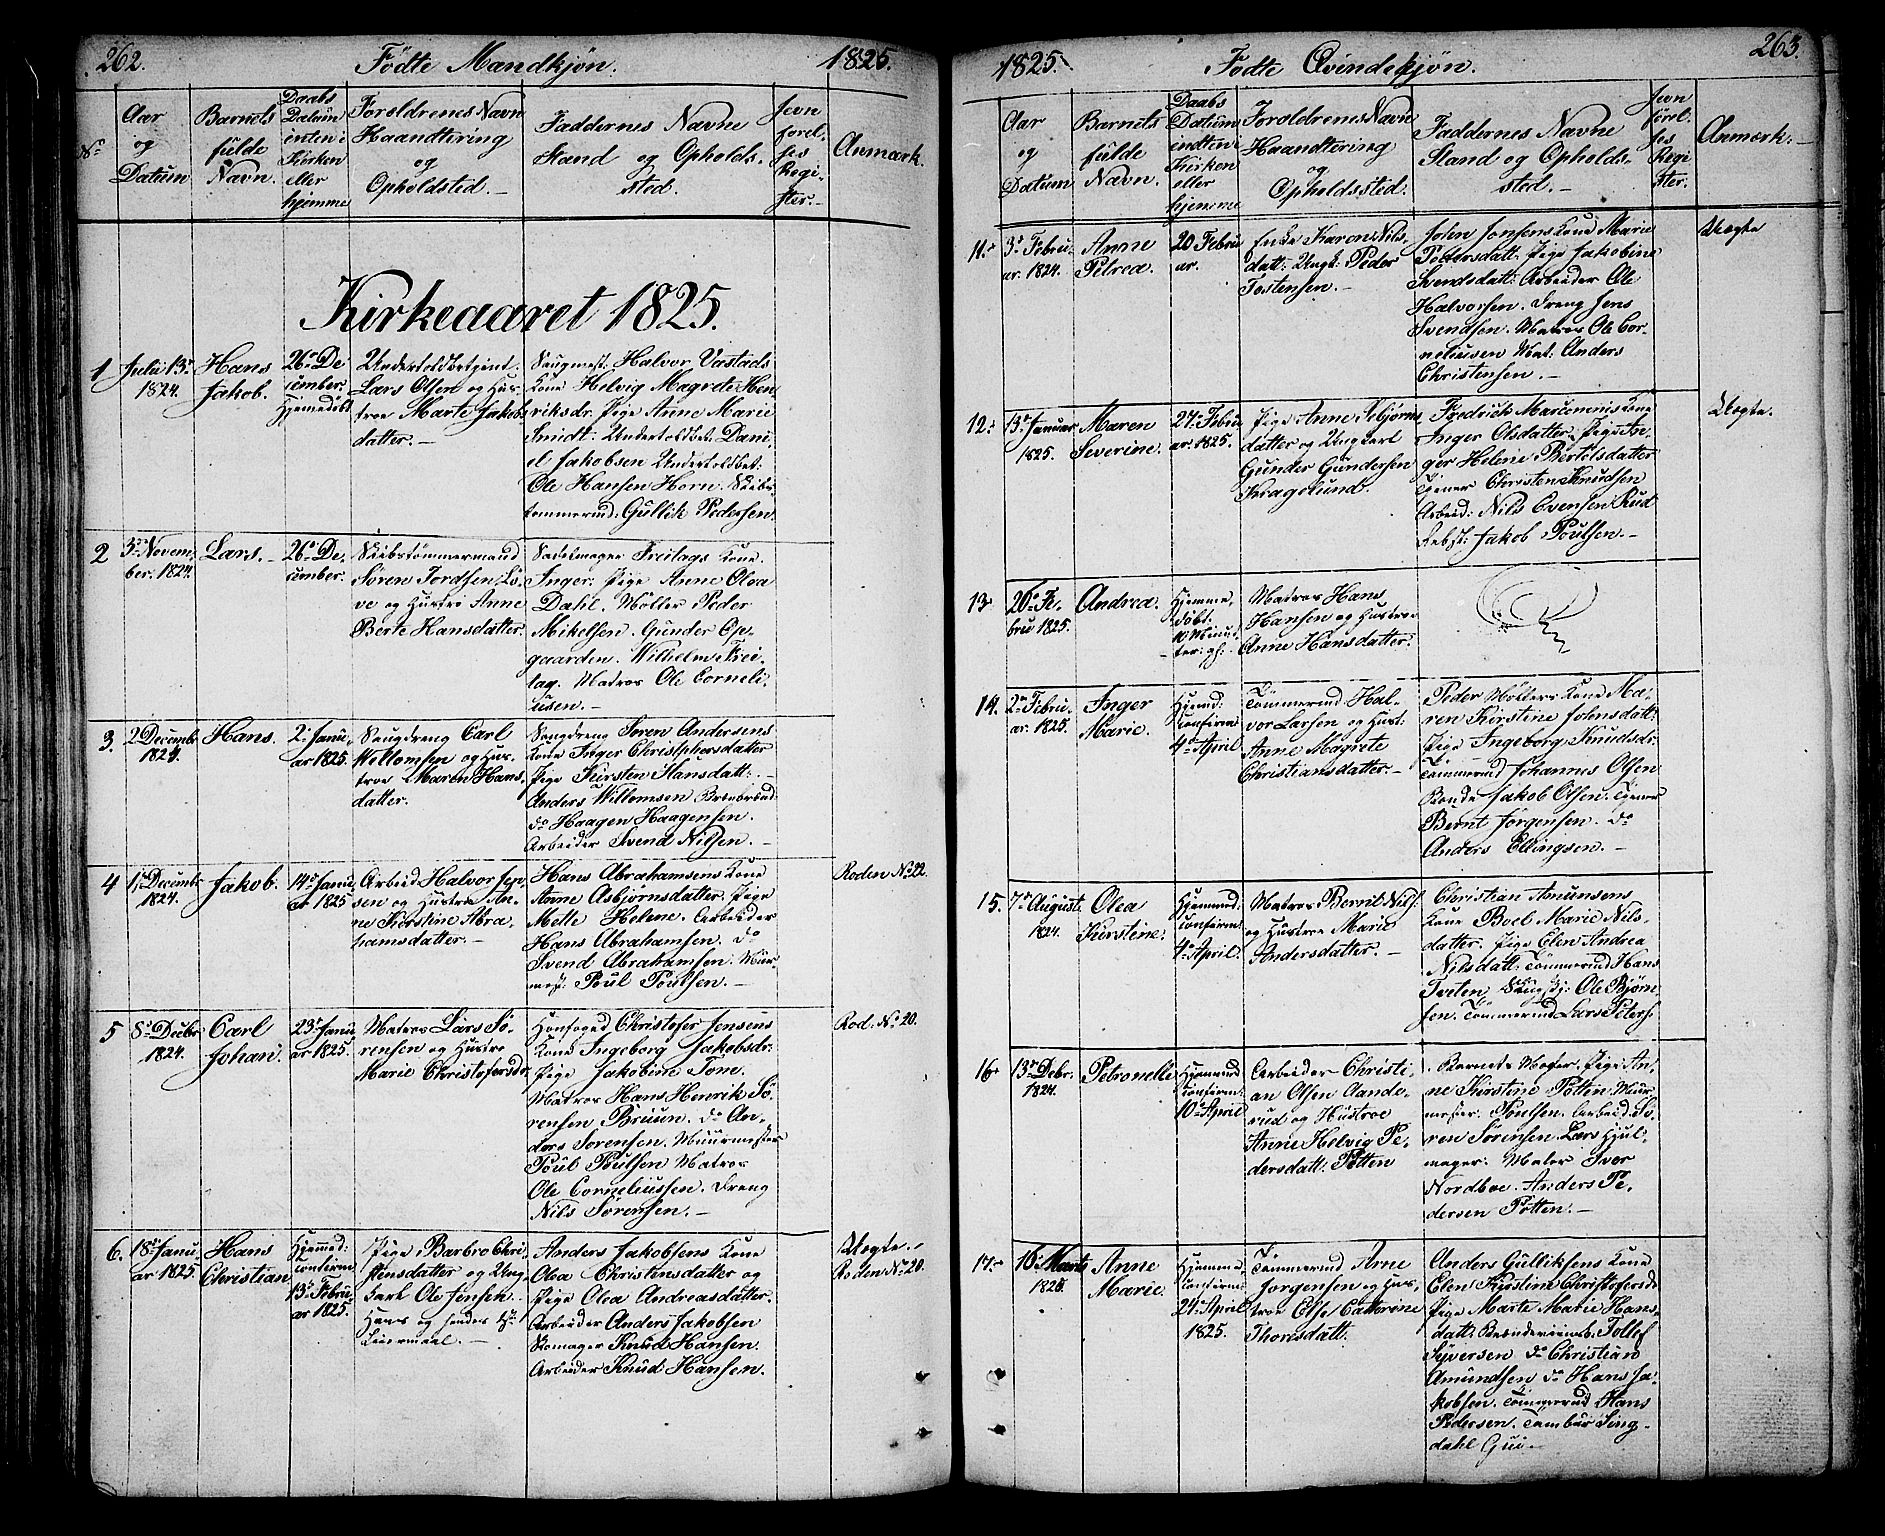 262.
Födte Mandkjön.
1825.
No
Aar
og
Datum
Barnets
fulde
Navn.
Daabs
Datum
enten i
Kirken
eller
hjemme
Foreldrenes Navn
Haandtering
og
Opholdsted.—
Faddernes Navne
Stand og Opholds-
sted.
Jevn
förel-
ses
Regi-
ster.—
Anmærk.
Kirkeaaret 1825.
1
Julii 13de
1824.
Hans
Jakob.
26de De
cember.
Hjemedöbt
Undertoldbetjent
Lars Olsen og Hus-
troe Marte Jakobs
datter.—
Saugmest. Halvor Vastads
Kone Helvig Magrete Hen-
riksdr. Pige Anne Marie
Smidt. Undertoldbet: Dani-
el Jakobsen Undertoldbet:
Ole Hansen Horn. Skibs
tømmermd: Gullik Pedersen.
2
3de Novem-
ber. 1824.
Lars.—
26de De-
cember.
Skibstömmermand
Sören Tordsen Lö-
ve og Hustru Anne
Berte Hansdatter.
Sadelmager Freitags Kone.
Inger: Pige Anne Olea
Dahl. Möller Peder
Mikelsen. Gunder Op-
gaarden. Wilhelm Frei-
tag. Matros Ole Corneli-
usen.—
3.
2 Decembr
1824.
Hans.
2de Janu-
ar 1825.
Saugdreng Carl
Wellomsen og Hus-
troe Maren Hans-
datter.
Saugdreng Sören Andersens
Kone Inger Christphersdatter
Pige Kirsten Hansdatt:.—
Anders Willomsen
do Haagen Haagensen.
Arbeider Svend Nilsen.—
4
Decembr
1824.
Jakob.
14de Janu-
ar 1825
Arbeid Halvor Jep-
sen og Hustru An-
ne Kirstine Abra-
hamsdatter.—
Hans Abrahamsens Kone
Anne Asbjörnsdatter. Pige
Mette Helene. Arbeider
Hans Abrahamsen. do
Svend Abrahamsen. Mur-
mest: Poul Poulsen.—
Roden No 22.
5
8de Decbr
1824.
Carl
Johan.
23de Janu
ar 1825.
Matros Lars Sö-
rensen og Hustroe
Marie Christofersdr
Havfoged Christofer Jensens
Kone Ingeborg Jakobsdr:
Pige Jakobine Tone.
Matros Hans Henrik Sö-
rensen Bruun. do An-
ders Sörensen. Muurmester
Poul Poulsen Matros
Ole Corneliussen. Dreng
Nils Sörensen.—
Rod. No 20.
6.
18de Janu-
ar 1825.
Hans
Christian
Hjemmed:
confirm.
13de Febru-
ar 1825.
Pige Barbro Chri-
stensdatter og Ung-
karl Ole Jensen.
Hans og hendes 1ste
Leiermaal.—
Anders Jakobsens Kone
Olea Christensdatter og
Pige Olea Andreasdatter.
Arbeider Anders Jakobsen
Skomager Knud Hansen.
Arbeider Knud Hansen.
Uægte.—
Roden No 20.
1825.
Födte Qvindekjön.
263.
Aar
og
Datum
Barnets
fulde
Navn.
Daabs
Datum
endten i
Kirken
eller
hjemme
Foreldrenes Navn
Haandtering
og
Opholdssted.
Faddernes Navne
Stand og Opholds-
sted.—
Jevn
förel-
ses
Regi-
ster.
Anmærk.—
11.
3de Febru-
ar. 1824.
Anne
Petrea.
20 Febru
ar.
Enke Karen Nils-
datt: Ungk: Peder
Tostensen.—
John Jonsens Kone Marie
Pedersdatt. Pige Jakobine
Svendsdatt: Arbeider Ole
Halvorsen. Dreng Jens
Svendsen. Matros Ole Cor-
neliusen Mat: Anders
Christensen.—
Uægte
12.
13de Januar
1825.
Maren
Severine.
27de Febru
ar. 1825.
Pige Anne Asbjörns
datter og Ungkarl
Gunder Gundersen
Kragelund.
Fredrik Kone
Inger Olsdatter. Pige In-
ger Helene Bertelsdatter
Tjener Christen Knudsen
Arbeid: Nils Evensen Rud
Rebsl: Jakob Poulsen.—
Uægte.
13
26de Fe-
bru 1825.
Andrea.
Hjemme-
döbt.
10 Minut-
ter:
Matros Hans
Hansen og Hustroe
Anne Hansdatter.
14.
2den Febru-
ar. 1825.
Inger
Marie.
Hjemd:
confirm:
4de April
Tömmermd Hal-
vor Larsen og Hust:
Anne Magrete
Christiansdatter.—
Peder Möllers Kone Ma-
ren Kirstine Johnsdatt:
Pige Ingeborg Knudsdr:
Tömmermd Johannes Olsen
Bonde Jakob Olsen. Tjener
Bernt Jörgensen. do
Anders Ellingsen.—
15.
7de August
1824.
Olea
Kirstine.
Hjemmed:
confirm:
4de April.
Matros Bernt Nils-
og Hustroe Marie
Andersdatter.—
Christian Amunsens
Kone Boel Marie Nils-
datter. Pige Elen Andrea
Nilsdatt: Tömmermd Hans
Tveten. Ole Björn
sen. Tömmermd Lars Peters
16
13de Debr.
1824.
Petronelle
Hjemmed
confirm:
10de April
Arbeider Christi-
an Olsen Aande-
rud og Hustroe
Anne Helvig Pe-
dersdatt: Potten
Barnets Moder. Pige An-
ne Kirstine Potten. Muur-
mester: Poulsen. Arbeid. Sö-
ren Sörensen. Lars Hjul-
mager. Maler Iver
Nordboe. Anders Pe-
dersen Potten.—
17.
16de Marts
1825.
Anne
Marie.
Hjemmed
confirm:
24de April
1825.
Tömmermd Arne
Jorgensen og Hus-
troe Else Catrine
Thoresdatt.
Anders Gulliksens Kone
Elen Kirstine Christofersd
Pige Marte Marie Hans-
datt: Tollef
Syversen do Christian
Amundsen do Hans Ja-
kobsen. Tömmermd Hans
Pedersen. Tambur Sing-
dahl